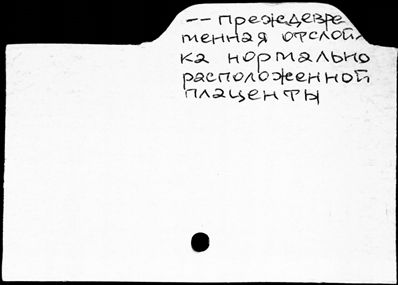 -- преждевре
менная отслой
ка нормально
расположенной
плаценты